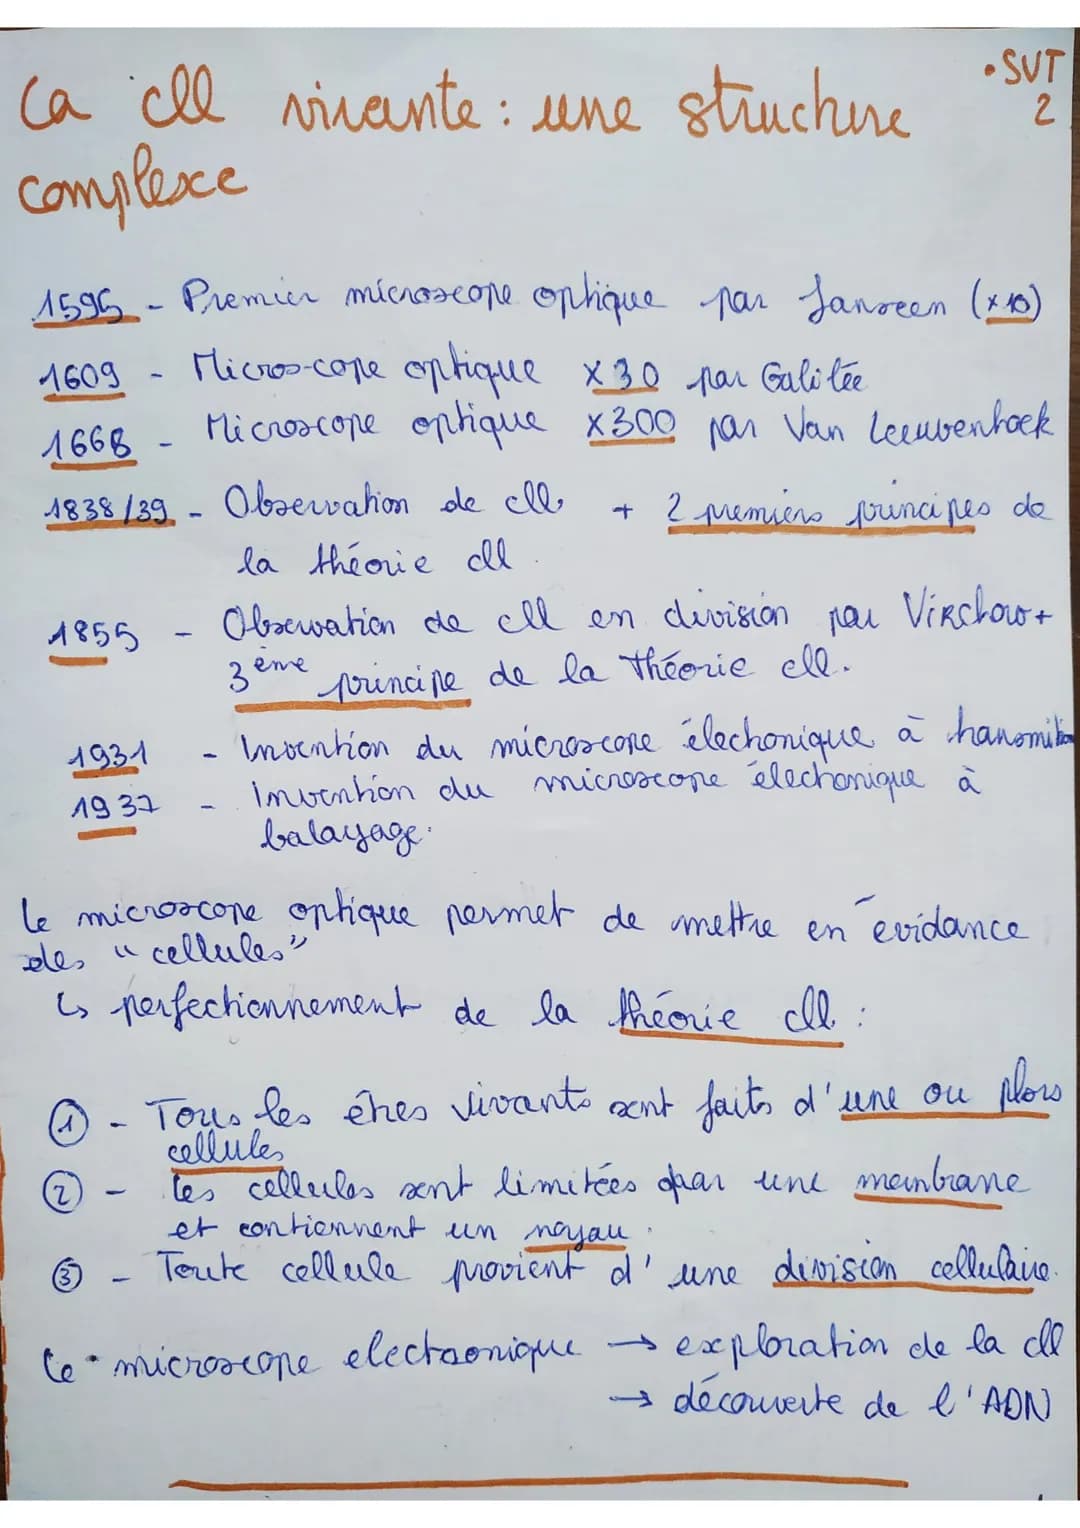 • SVT
2
La cll vivante : une structure
complexe
1595 - Premier microscope optique par Janseen (x10)
1609 - Micros-cope optique x30 par Galilée
1668 - Microscope optique x300 par Van Leeuwenhoek
1838/39 - Observation de cll. + 2 premiers principes de
la théorie cll.
1855 - Observation de cll en division par Virchow +
3ème principe de la théorie cll.
1931 - Invention du microscope électronique à transmition
1937 - Invention du microscope électronique à
balayage.
Le microscope optique permet de mettre en évidance
des "cellules"
↳ perfectionnement de la théorie cll. :
① - Tous les êtres vivants sont faits d'une ou plors
cellules
② - Les cellules sont limitées par une membrane
et contiennent un noyau.
③ - Toute cellule provient d'une division cellulaire.
Le microscope electronique → exploration de la cll
→ découverte de l'ADN